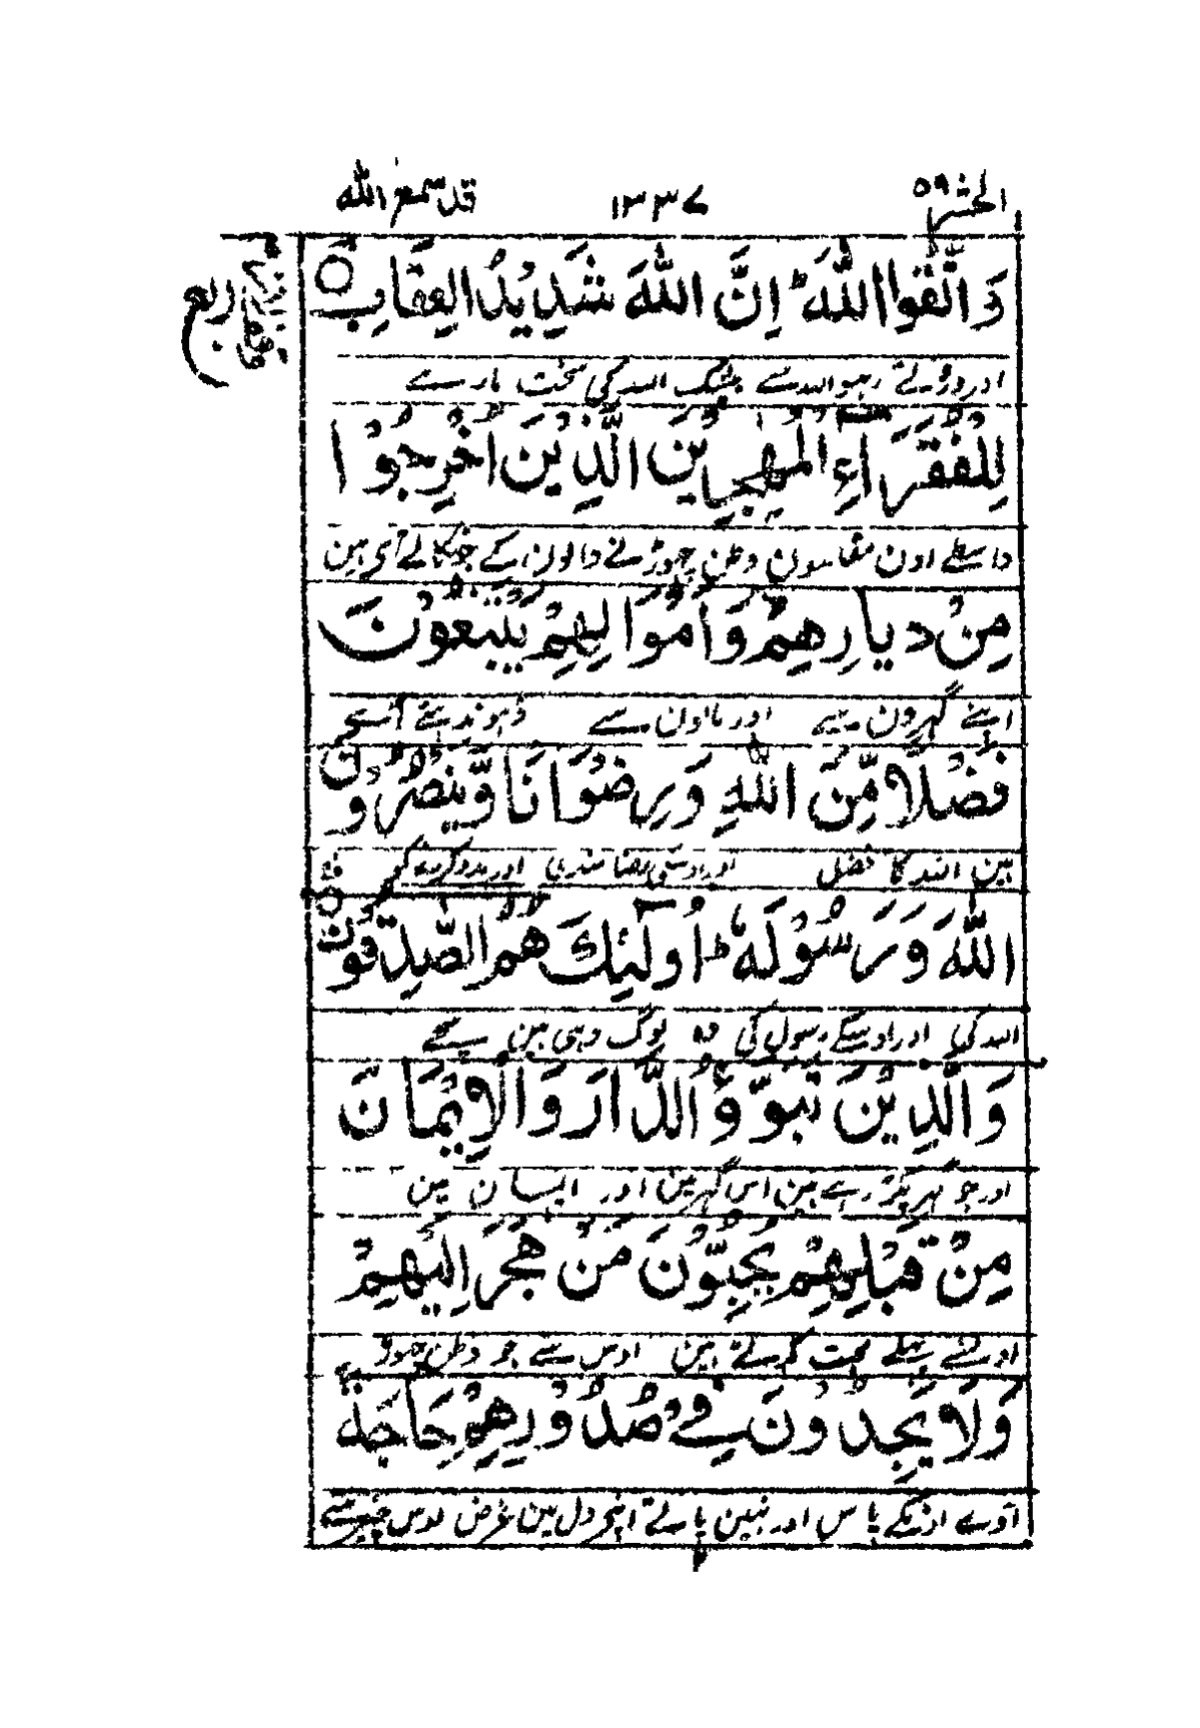 الحشر ٥٩ ١٣٣٧ قد سمع الله
وَاتَّقُوا اللّٰهَ ؕ اِنَّ اللّٰهَ شَدِيْدُ الْعِقَابِ ○
ربع
اور ڈرتے رہو اللہ سے بیشک اللہ کی سخت مار ہے
لِلْفُقَرَآءِ الْمُهٰجِرِيْنَ الَّذِيْنَ اُخْرِجُوْا
واسطے اون مفلسون وطن چھوڑنے والون کے جو نکالے آی ہین
مِنْ دِيَارِهِمْ وَاَمْوَالِهِمْ يَبْتَغُوْنَ
اپنے گھرون سے اور مالون سے ڈہونڈہتے آئے
فَضْلًا مِّنَ اللّٰهِ وَرِضْوَانًا وَّيَنْصُرُوْنَ
ہین اللہ کا فضل اور اوسکی رضا مندی اور مدد کرنے کو
اللّٰهَ وَرَسُوْلَهٗ ؕ اُولٰٓئِكَ هُمُ الصّٰدِقُوْنَ ○
اللہ کی اور اوسکے رسول کی وہ لوگ وہی ہین سچے
وَالَّذِيْنَ تَبَوَّؤُ الدَّارَ وَالْاِيْمَانَ
اور جو گھر پکڑ رہے ہین اس گھر مین اور ایمان مین
مِنْ قَبْلِهِمْ يُحِبُّوْنَ مَنْ هَجَرَ اِلَيْهِمْ
اونسے پہلے محبت کرتے ہین اوس سے جو وطن چھوڑ
وَلَا يَجِدُوْنَ فِيْ صُدُوْرِهِمْ حَاجَةً
آوے اونکے پاس اور نہین پاتے اپنے دل مین غرض اوس چیز سے